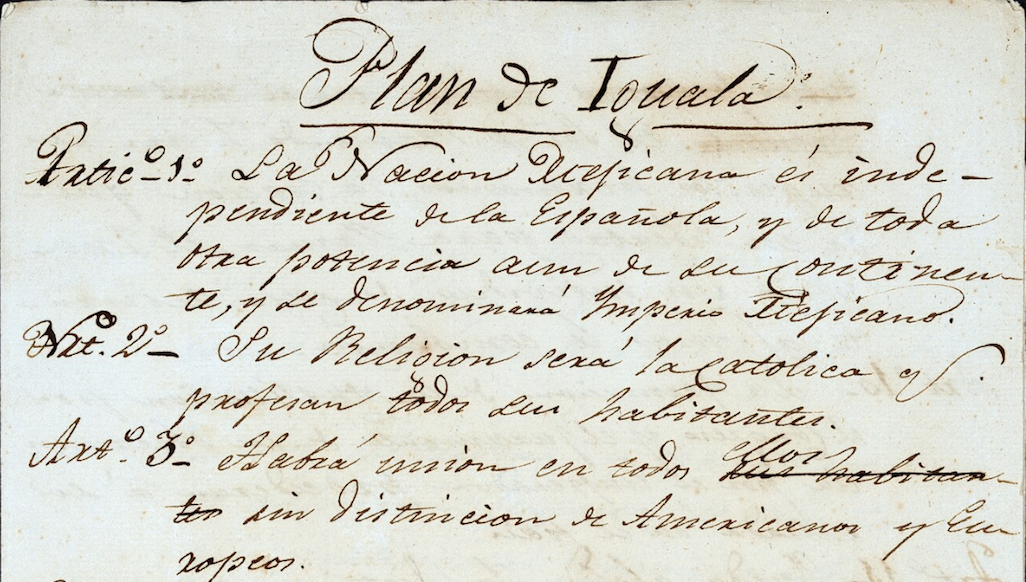 Plan de Iguala.
Artic.º 1º La Nacion Mejicana és inde-
pendiente de la Española, y de toda
otra potencia aun de su Continen-
te, y se denominará Imperio Mejicano.
Art.º 2º Su Religion será la Catolica q.
profesan todos sus habitantes.
Art.º 3º Habrá unión en todos ellos sus habitan-
tes sin distincion de Americanos y Eu-
ropeos.